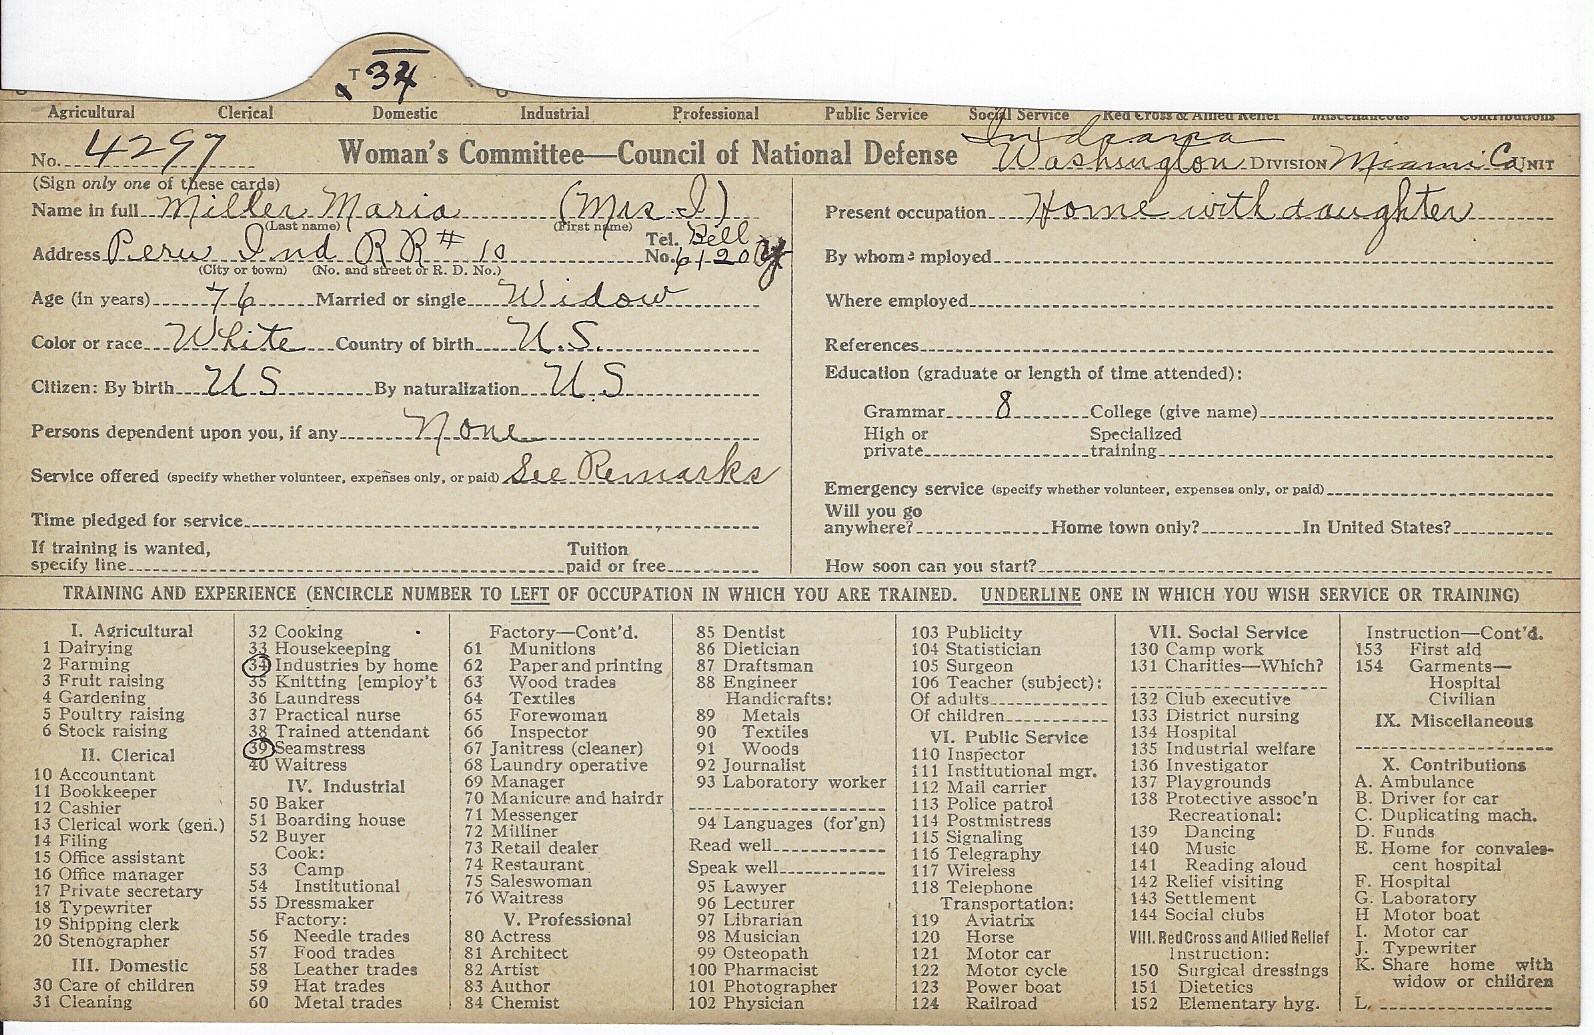 T 34
Agricultural Clerical Domestic Industrial Professional Public Service Social Service Red Cross & Allied Relief Miscellaneous Contributions
Indiana
No. 4297 Woman's Committee—Council of National Defense Washington DIVISION Miami Co UNIT
(Sign only one of these cards)
Name in full Miller Maria (Mrs. I)
(Last name) (First name)
Address Peru Ind RR# 10 Tel. No. Bell 6120 y
(City or town) (No. and street or R. D. No.)
Age (in years) 76 Married or single Widow
Color or race White Country of birth U.S.
Citizen: By birth US By naturalization U.S
Persons dependent upon you, if any None
Service offered (specify whether volunteer, expenses only, or paid) See Remarks
Time pledged for service
If training is wanted, specify line Tuition paid or free
Present occupation Home with daughter
By whom mployed
Where employed
References
Education (graduate or length of time attended):
Grammar 8 College (give name)
High or private Specialized training
Emergency service (specify whether volunteer, expenses only, or paid)
Will you go anywhere? Home town only? In United States?
How soon can you start?
TRAINING AND EXPERIENCE (ENCIRCLE NUMBER TO LEFT OF OCCUPATION IN WHICH YOU ARE TRAINED. UNDERLINE ONE IN WHICH YOU WISH SERVICE OR TRAINING)
I. Agricultural
1 Dairying
2 Farming
3 Fruit raising
4 Gardening
5 Poultry raising
6 Stock raising
II. Clerical
10 Accountant
11 Bookkeeper
12 Cashier
13 Clerical work (gen.)
14 Filing
15 Office assistant
16 Office manager
17 Private secretary
18 Typewriter
19 Shipping clerk
20 Stenographer
III. Domestic
30 Care of children
31 Cleaning
32 Cooking
33 Housekeeping
34 Industries by home
35 Knitting [employ't
36 Laundress
37 Practical nurse
38 Trained attendant
39 Seamstress
40 Waitress
IV. Industrial
50 Baker
51 Boarding house
52 Buyer
Cook:
53 Camp
54 Institutional
55 Dressmaker
Factory:
56 Needle trades
57 Food trades
58 Leather trades
59 Hat trades
60 Metal trades
Factory—Cont'd.
61 Munitions
62 Paper and printing
63 Wood trades
64 Textiles
65 Forewoman
66 Inspector
67 Janitress (cleaner)
68 Laundry operative
69 Manager
70 Manicure and hairdr
71 Messenger
72 Milliner
73 Retail dealer
74 Restaurant
75 Saleswoman
76 Waitress
V. Professional
80 Actress
81 Architect
82 Artist
83 Author
84 Chemist
85 Dentist
86 Dietician
87 Draftsman
88 Engineer
Handicrafts:
89 Metals
90 Textiles
91 Woods
92 Journalist
93 Laboratory worker
94 Languages (for'gn)
Read well
Speak well
95 Lawyer
96 Lecturer
97 Librarian
98 Musician
99 Osteopath
100 Pharmacist
101 Photographer
102 Physician
103 Publicity
104 Statistician
105 Surgeon
106 Teacher (subject):
Of adults
Of children
VI. Public Service
110 Inspector
111 Institutional mgr.
112 Mail carrier
113 Police patrol
114 Postmistress
115 Signaling
116 Telegraphy
117 Wireless
118 Telephone
Transportation:
119 Aviatrix
120 Horse
121 Motor car
122 Motor cycle
123 Power boat
124 Railroad
VII. Social Service
130 Camp work
131 Charities—Which?
132 Club executive
133 District nursing
134 Hospital
135 Industrial welfare
136 Investigator
137 Playgrounds
138 Protective assoc'n
Recreational:
139 Dancing
140 Music
141 Reading aloud
142 Relief visiting
143 Settlement
144 Social clubs
VIII. Red Cross and Allied Relief
Instruction:
150 Surgical dressings
151 Dietetics
152 Elementary hyg.
Instruction—Cont'd.
153 First aid
154 Garments—
Hospital
Civilian
IX. Miscellaneous
X. Contributions
A. Ambulance
B. Driver for car
C. Duplicating mach.
D. Funds
E. Home for convales-
cent hospital
F. Hospital
G. Laboratory
H Motor boat
I. Motor car
J. Typewriter
K. Share home with
widow or children
L.